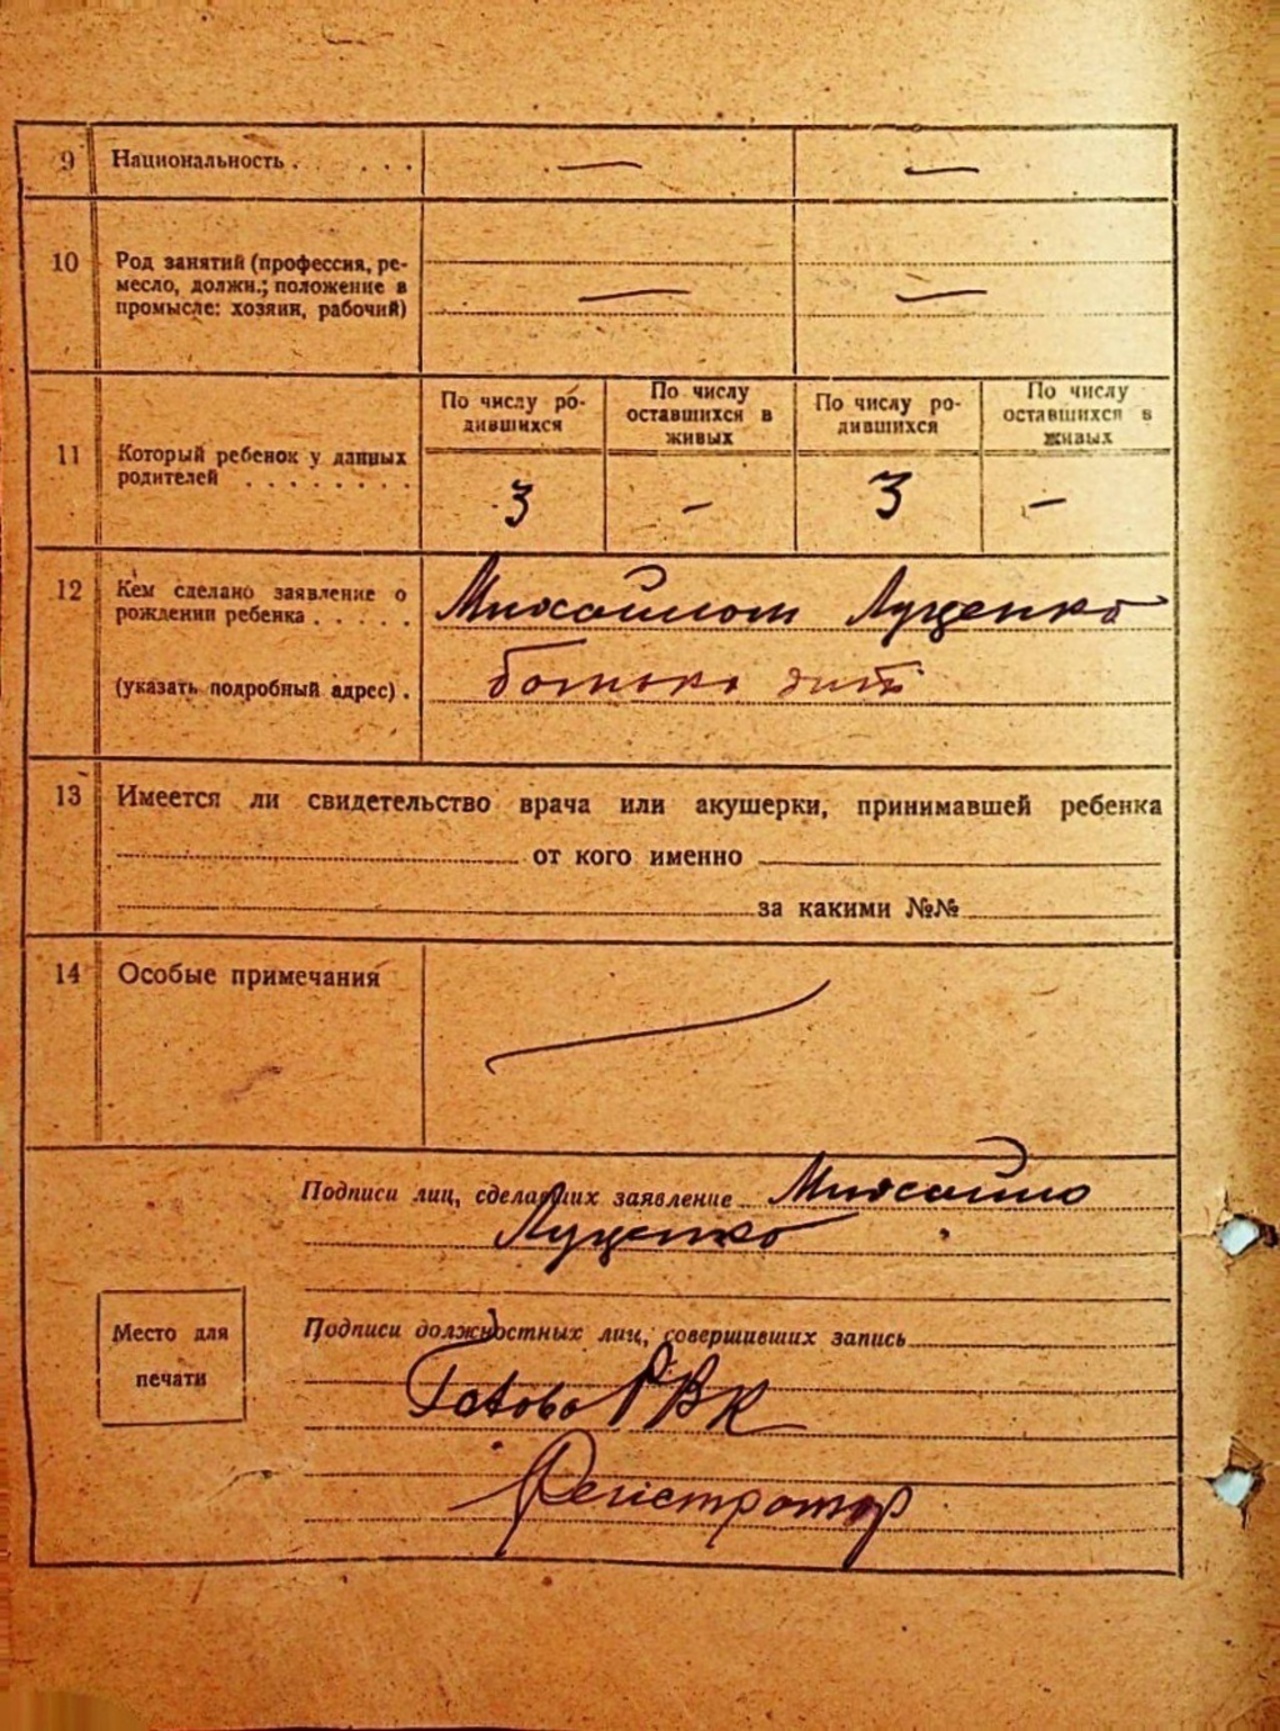 9 Национальность . . . . . . — —
10 Род занятий (профессия, ре-
месло, должн.; положение в
промысле: хозяин, рабочий) — —
11 Который ребенок у данных
родителей . . . . . . . .
По числу ро-
дившихся
По числу
оставшихся в
живых
По числу ро-
дившихся
По числу
оставшихся в
живых
3 - 3 -
12 Кем сделано заявление о
рождении ребенка . . . . .
(указать подробный адрес) .
Михайлом Луценко
батько дит
13 Имеется ли свидетельство врача или акушерки, принимавшей ребенка
от кого именно
за какими №№
14 Особые примечания
Подписи лиц, сделавших заявление Михайло
Луценко
Место для
печати
Подписи должностных лиц, совершивших запись
Голова РВК
Регістратор